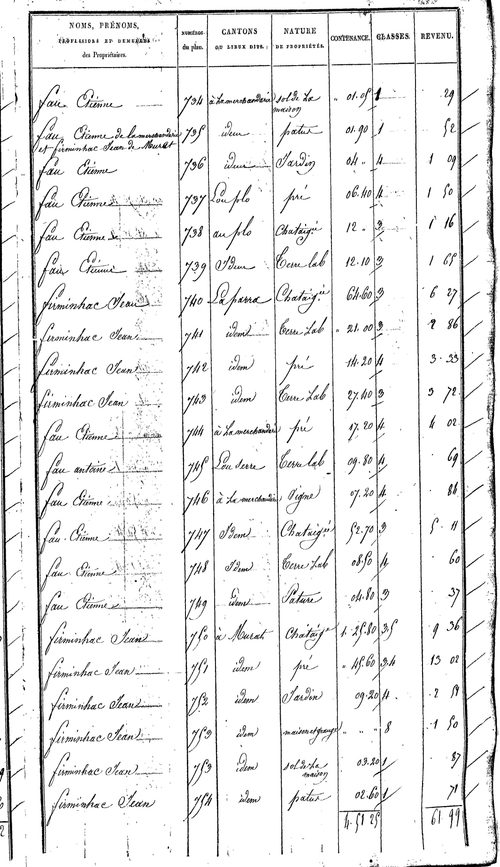 NOMS, PRÉNOMS, PROFESSIONS ET DEMEURES des Propriétaires. NUMÉROS du plan. CANTONS OU LIEUX DITS. NATURE DE PROPRIÉTÉS. CONTENANCE. CLASSES. REVENU.
fau Etienne 734 à Lamerchanderie sol de La maison " 01.05 1 29
fau Etienne de lamerchanderie et firminhac Jean de Murat 735 idem patus 01.90 1 52
fau Etienne 736 idem Jardin 04 " 4 1 09
fau Etienne 737 Lou plo pré 06.40 4 1 50
fau Etienne 738 au plo Chataig 12 " 3 1 16
fau Etienne 739 Idem Terre lab 12.10 3 1 65
firminhac Jean 740 La parra Chataig 64.60 3 6 27
firminhac Jean 741 idem Terre Lab " 21.00 3 2 86
firminhac Jean 742 idem pré 14.20 4 3 33
firminhac Jean 743 idem Terre Lab 27.40 3 3 72
fau Etienne 744 à Lamerchanderie pré 17.20 4 4 02
fau antoine 745 Lou serre Terre lab 09.80 4 69
fau Etienne 746 à La merchanderie Vigne 07.20 4 86
fau Etienne 747 Idem Chataig 52.70 3 5 11
fau Etienne 748 Idem Terre Lab 08.50 4 60
fau Etienne 749 idem Pature 04.80 3 37
firminhac Jean 750 à Murat Chataig 1. 25.80 3.5 9 36
firminhac Jean 751 idem pre " 45.60 3.4 13 02
firminhac Jean 752 idem Jardin 09.20 4 2 51
firminhac Jean 753 idem maison et grange " " " 8 1 50
firminhac Jean 753 idem sol de La maison 03.20 1 87
firminhac Jean 754 idem patus 02.60 1 71
4.51 25 61.99